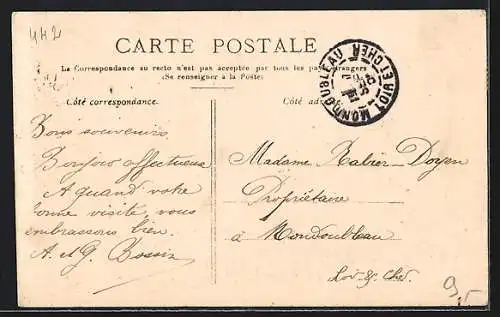 442
CARTE POSTALE
La Correspondance au recto n'est pas acceptée par tous les pays étrangers
(Se renseigner à la Poste)
Côté correspondance.
Côté
MONDOUBLEAU LOIR ET CHER
Bons souvenirs
Bonjour affectueux
A quand votre
bonne visite, vous
embrassons bien.
A. et G. Bossin
Madame Rabier-Doyen
Propriétaire
à Mondoubleau
Loir-&-Cher